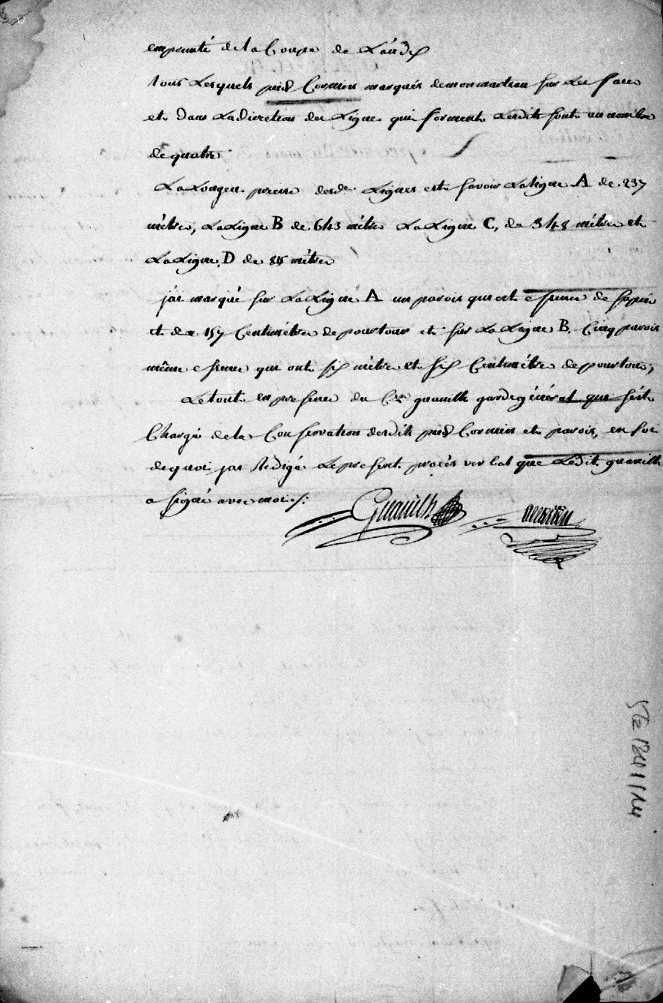 emprunté de la Coupe de L'an dix
tous Lesquels pied Cormier marqués de mon marteau sur les faces
et dans La direction des Lignes qui forment Lesdits sont au nombre
de quatre
La Longeur presise desdes Lignes est savoir La ligne A de 237
mètres, La Ligne B de 643 mètres La Ligne C, de 348 mètres et
La Ligne D de 88 mètres
jai marqué sur La Ligne A un parois qui est essence de sapin
et de 157 Centimètres de pourtour et sur La Ligne B. Cinq parois
même essence qui ont six mètres et six Centimètres de pourtour,
Le tout en presence du Cen guauilh garde général qui s'est
Chargé de la Conservation desdits pied Cormier et parois, en foi
de quoi jai Redigé Le present procès verbal que Ledit guauilh
a signé avec moi ./.
Guauilh